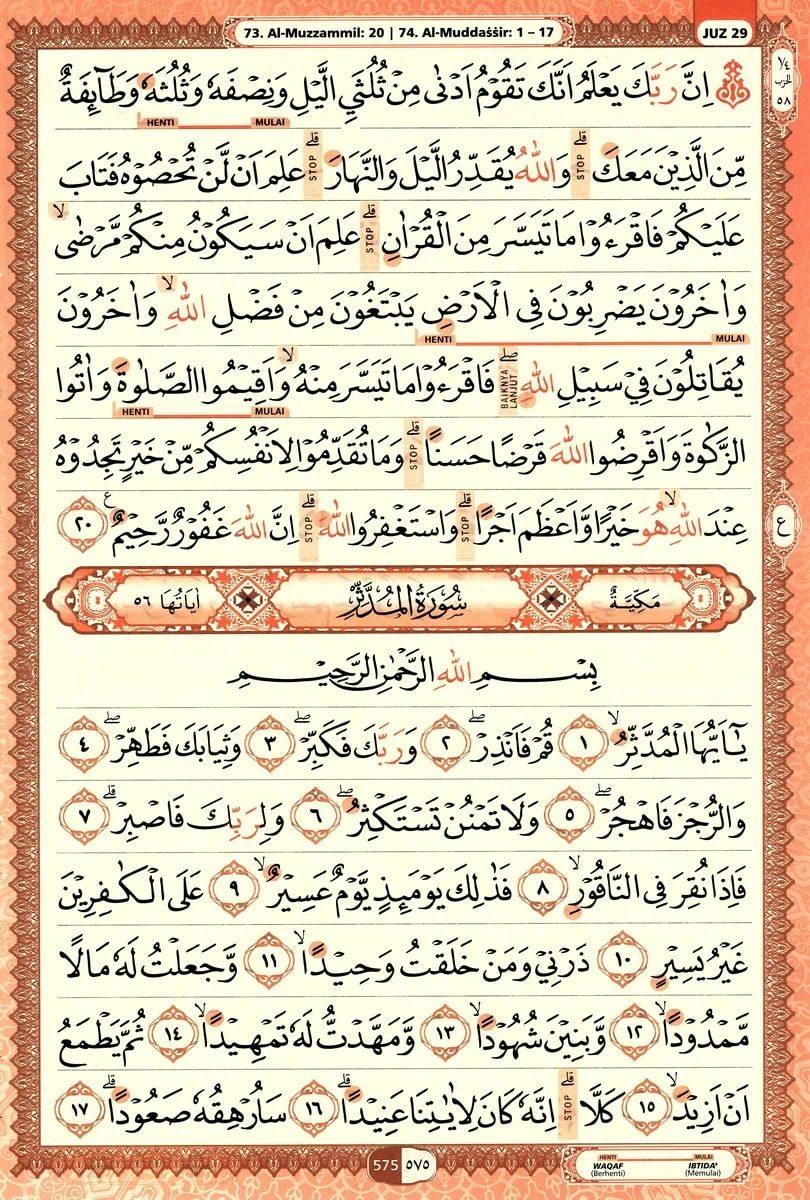 73. Al-Muzzammil: 20 | 74. Al-Muddaṡṡir: 1 – 17
JUZ 29
١/٤
الحزب
٥٨
اِنَّ رَبَّكَ يَعْلَمُ اَنَّكَ تَقُوْمُ اَدْنٰى مِنْ ثُلُثَيِ الَّيْلِ وَنِصْفَهٗ وَثُلُثَهٗ وَطَاۤىِٕفَةٌ
HENTI MULAI
مِّنَ الَّذِيْنَ مَعَكَۗ STOP وَاللّٰهُ يُقَدِّرُ الَّيْلَ وَالنَّهَارَۗ STOP عَلِمَ اَنْ لَّنْ تُحْصُوْهُ فَتَابَ
عَلَيْكُمْ فَاقْرَءُوْا مَا تَيَسَّرَ مِنَ الْقُرْاٰنِۗ STOP عَلِمَ اَنْ سَيَكُوْنُ مِنْكُمْ مَّرْضٰىۙ
وَاٰخَرُوْنَ يَضْرِبُوْنَ فِى الْاَرْضِ يَبْتَغُوْنَ مِنْ فَضْلِ اللّٰهِ ۙ وَاٰخَرُوْنَ
HENTI MULAI
يُقَاتِلُوْنَ فِيْ سَبِيْلِ اللّٰهِ ۖ BAIKNYA LANJUT فَاقْرَءُوْا مَا تَيَسَّرَ مِنْهُۙ وَاَقِيْمُوا الصَّلٰوةَ وَاٰتُوا
HENTI MULAI
الزَّكٰوةَ وَاَقْرِضُوا اللّٰهَ قَرْضًا حَسَنًاۗ STOP وَمَا تُقَدِّمُوْا لِاَنْفُسِكُمْ مِّنْ خَيْرٍ تَجِدُوْهُ
عِنْدَ اللّٰهِ ۙهُوَ خَيْرًا وَّاَعْظَمَ اَجْرًاۗ STOP وَاسْتَغْفِرُوا اللّٰهَ ۗ STOP اِنَّ اللّٰهَ غَفُوْرٌ رَّحِيْمٌ ࣖ ٢٠
ع
مَكِّيَّةٌ سُوْرَةُ الْمُدَّثِّرِ اٰيَاتُهَا ٥٦
بِسْمِ اللّٰهِ الرَّحْمٰنِ الرَّحِيْمِ
يٰٓاَيُّهَا الْمُدَّثِّرُۙ ١ قُمْ فَاَنْذِرْۖ ٢ وَرَبَّكَ فَكَبِّرْۖ ٣ وَثِيَابَكَ فَطَهِّرْۖ ٤
وَالرُّجْزَ فَاهْجُرْۖ ٥ وَلَا تَمْنُنْ تَسْتَكْثِرُۖ ٦ وَلِرَبِّكَ فَاصْبِرْۗ ٧
فَاِذَا نُقِرَ فِى النَّاقُوْرِۙ ٨ فَذٰلِكَ يَوْمَىِٕذٍ يَّوْمٌ عَسِيْرٌۙ ٩ عَلَى الْكٰفِرِيْنَ
غَيْرُ يَسِيْرٍ ١٠ ذَرْنِيْ وَمَنْ خَلَقْتُ وَحِيْدًاۙ ١١ وَّجَعَلْتُ لَهٗ مَالًا
مَّمْدُوْدًاۙ ١٢ وَّبَنِيْنَ شُهُوْدًاۙ ١٣ وَّمَهَّدْتُّ لَهٗ تَمْهِيْدًاۙ ١٤ ثُمَّ يَطْمَعُ
اَنْ اَزِيْدَۙ ١٥ كَلَّاۗ STOP اِنَّهٗ كَانَ لِاٰيٰتِنَا عَنِيْدًاۗ ١٦ سَاُرْهِقُهٗ صَعُوْدًاۗ ١٧
575 ٥٧٥
HENTI MULAI
WAQAF IBTIDA'
(Berhenti) (Memulai)